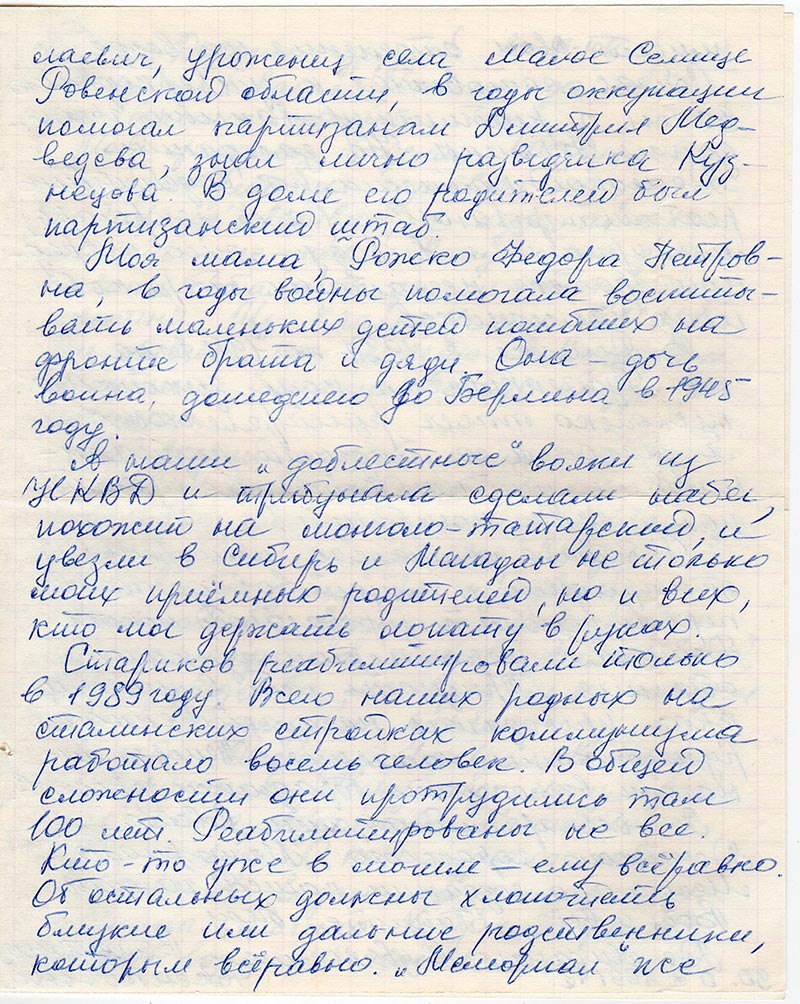 лаевич, уроженец села Малое Селище
Ровенской области, в годы оккупации
помогал партизанам Дмитрия Мед-
ведева, знал лично разведчика Куз-
нецова. В доме его родителей был
партизанский штаб.
Моя мама, Рожко Федора Петров-
на, в годы войны помогала воспиты-
вать маленьких детей погибших на
фронте брата и дяди. Она – дочь
воина, дошедшего до Берлина в 1945
году.
А наши „доблестные" вояки из
НКВД и трибунала сделали набег,
похожий на монголо-татарский, и
увезли в Сибирь и Магадан не только
моих приёмных родителей, но и всех,
кто мог держать лопату в руках.
Стариков реабилитировали только
в 1989 году. Всего наших родных на
сталинских стройках коммунизма
работало восемь человек. В общей
сложности они протрудились там
100 лет. Реабилитированы не все.
Кто-то уже в могиле – ему всёравно.
Об остальных должны хлопотать
близкие или дальние родственники,
которым всёравно. „Мемориал" же